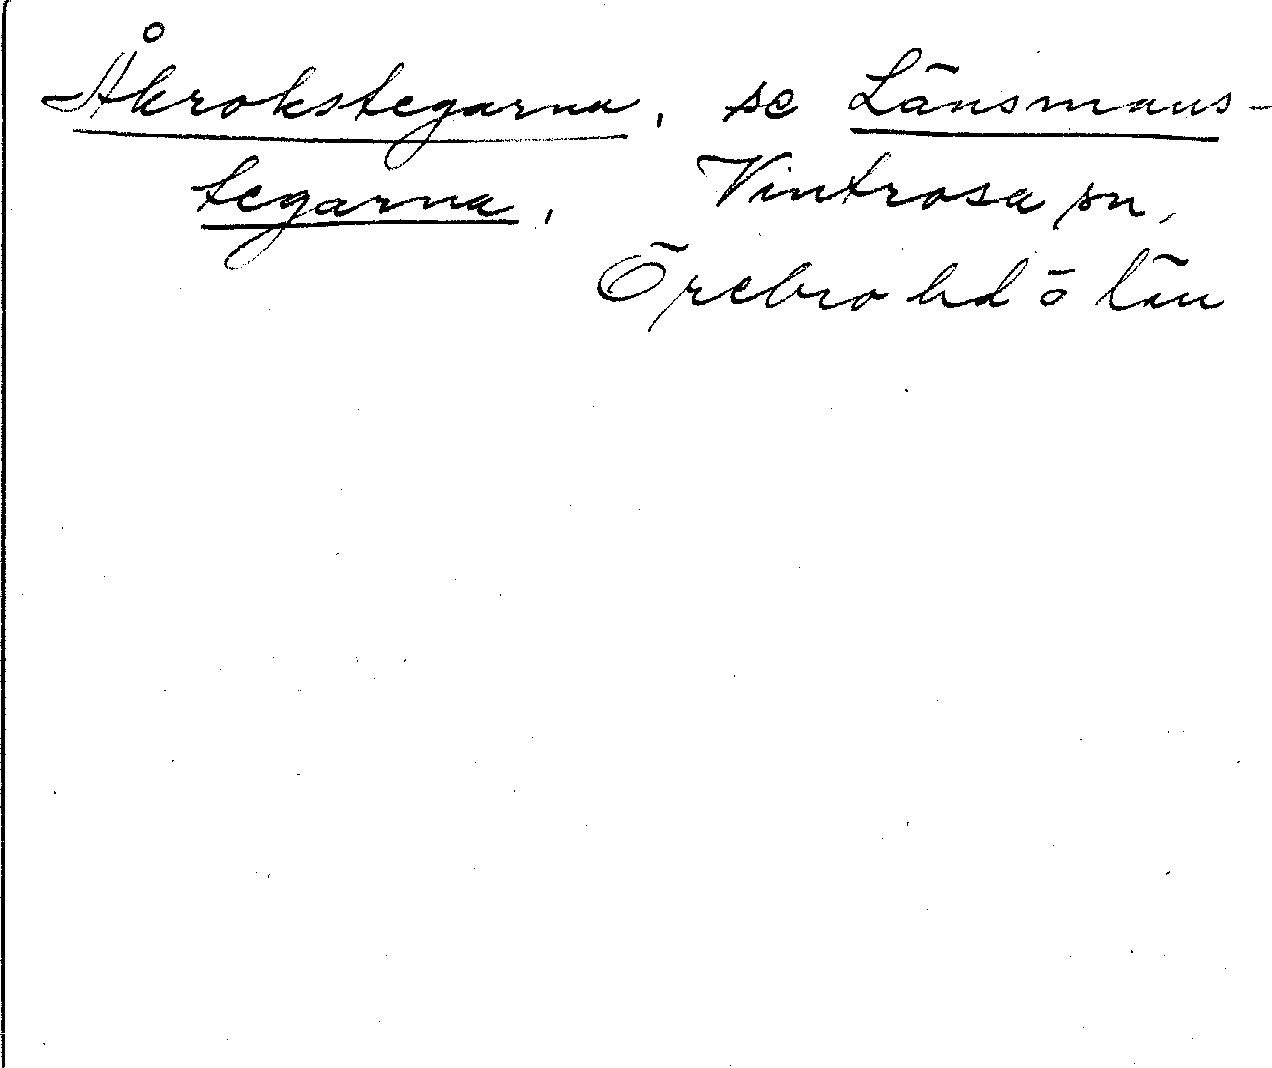 Åkrokstegarna, se Länsmans-
tegarna, Vintrosa sn,
Örebro hd ö län